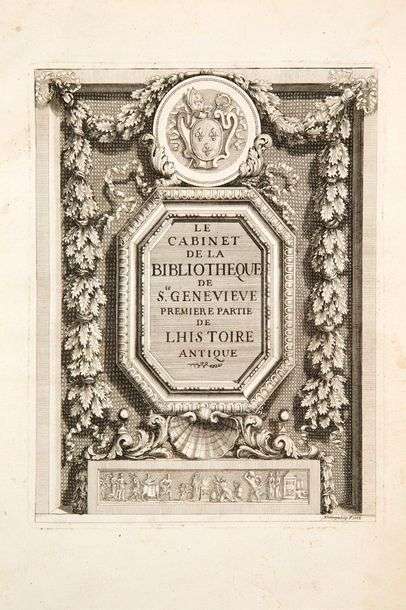 LE
CABINET
DE LA
BIBLIOTHEQUE
DE
Ste. GENEVIEVE
PREMIERE PARTIE
DE
LHISTOIRE
ANTIQUE